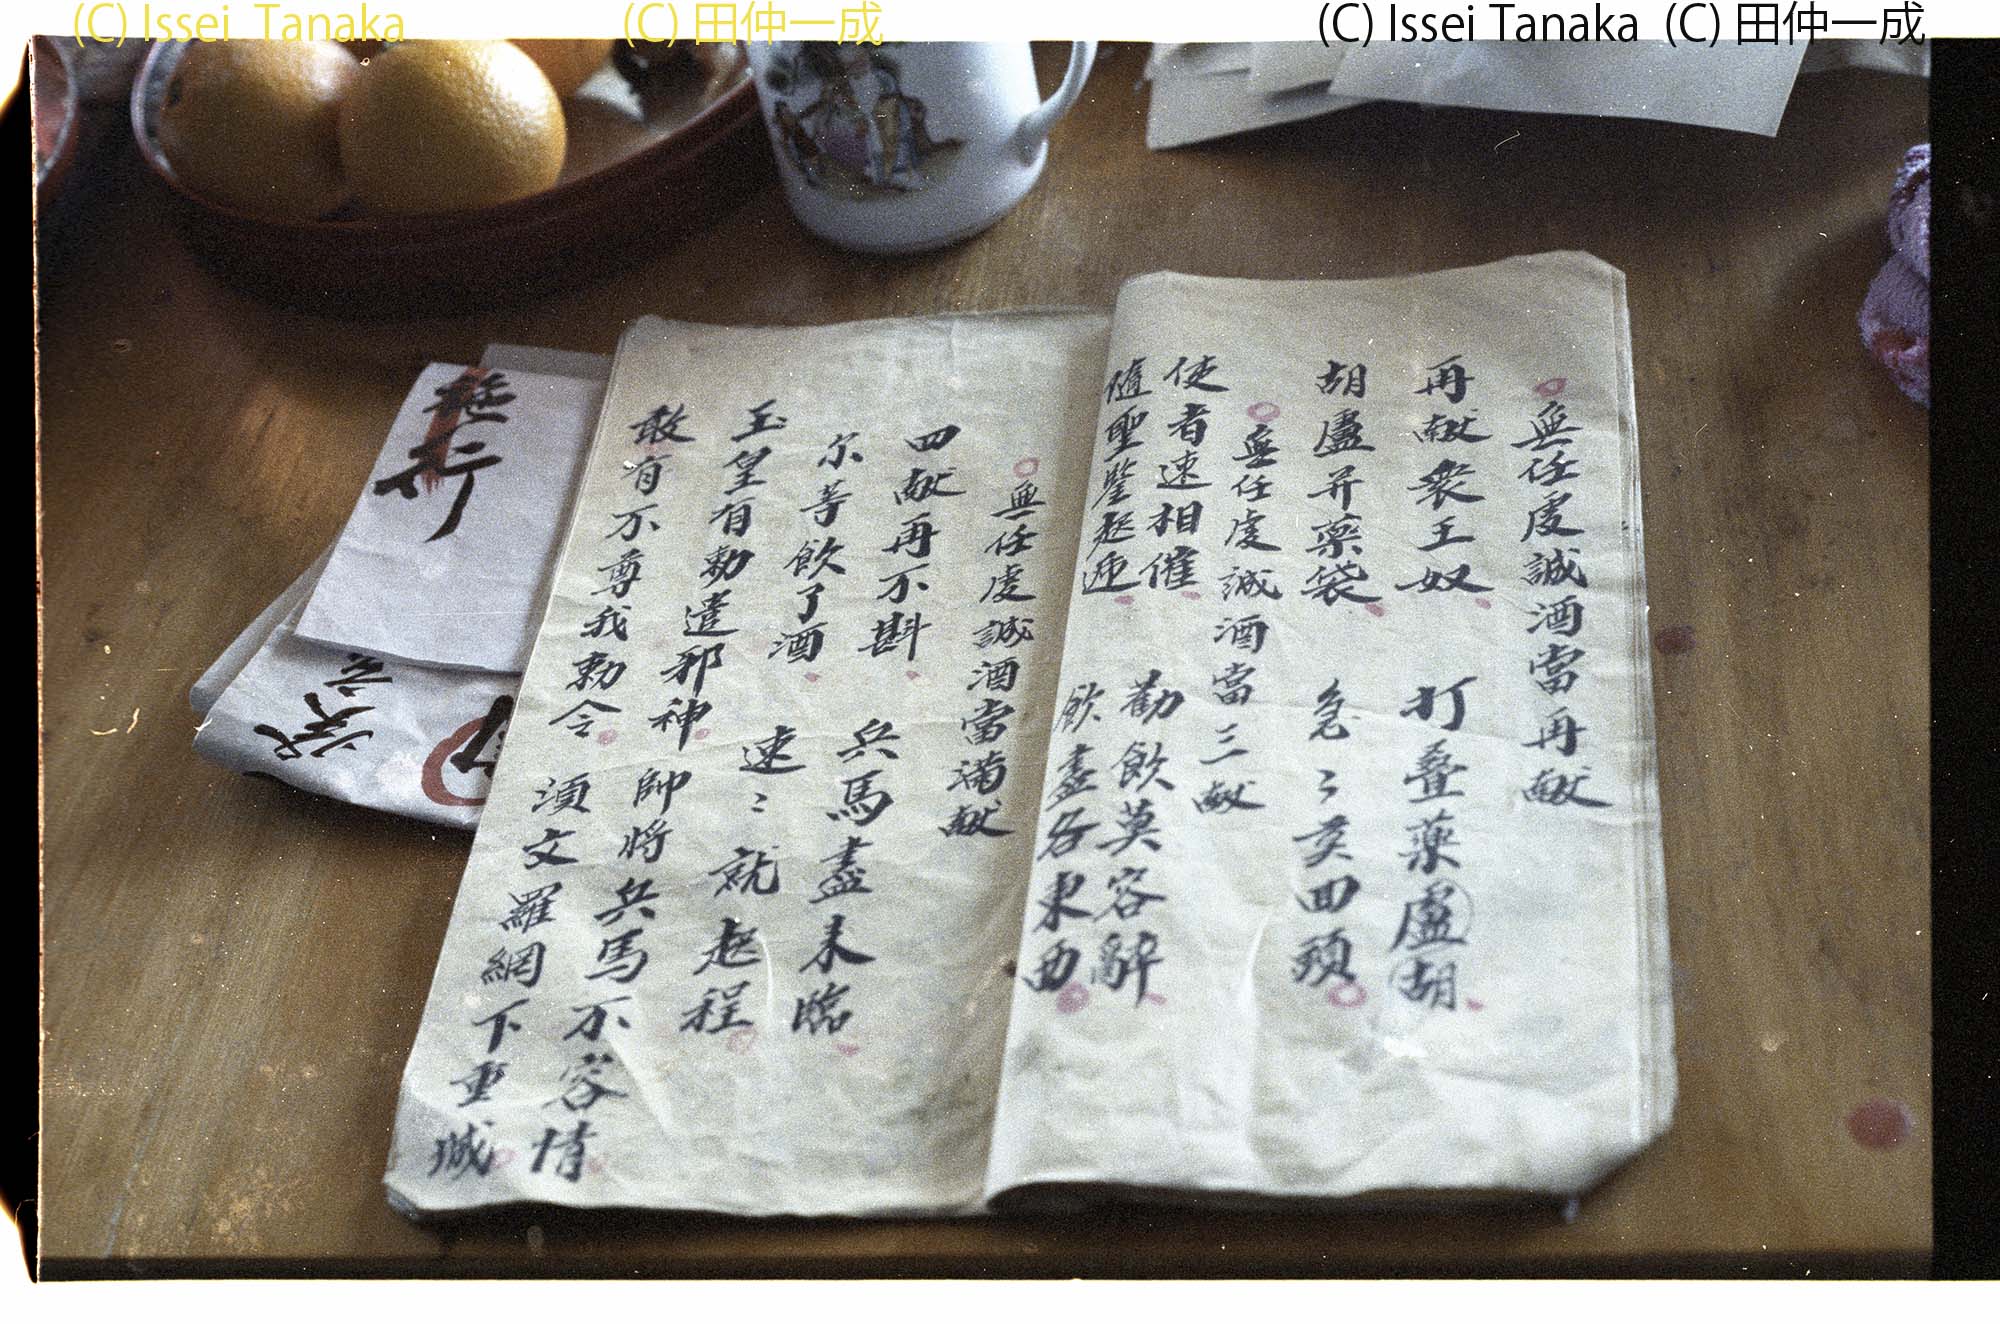 (C) Issei Tanaka (C) 田仲一成
(C) Issei Tanaka (C) 田仲一成
無任虔誠酒當再献
再献衆王奴 打叠藥盧胡
胡盧并藥袋 急〻亥回頭
無任虔誠酒當三献
使者速相催 勸飲莫容辭
隨聖鑒起 飲盡各東西
無任虔誠酒當満献
四献再不斟 兵馬盡未臨
尔等飲了酒 速〻就起程
玉皇有勅遣邪神 帥將兵馬不容情
敢有不尊我勅令 湏文羅網下重
行